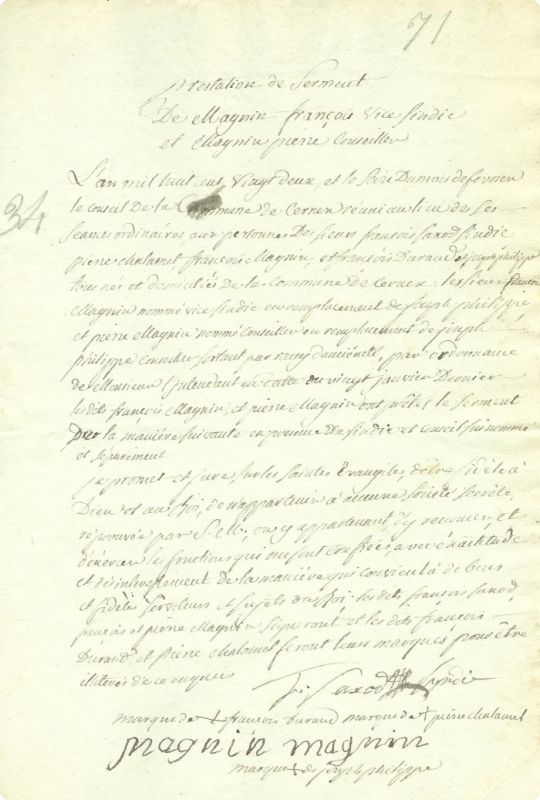 71
prestation de Serment
De Magnin françois Vice Sindic
et Magnin pierre Conseiller
34
L'an mil huit cent Vingt deux, et le Seize Du mois de fevrier
le Conseil De la Commune de Cernex réuni au lieu des ses
séances ordinaires aux personnes Des sieurs françois Saxod sindic
pierre chalamel, françois Magnin, et françois Durand et joseph philippe
tous nés et domiciliés De la Commune de Cernex les sieurs françois
Magnin nommé vice sindic en remplacement de joseph philippe
et pierre Magnin nommé Conseiller en remplacement de joseph
philippe Conseiller sortant par rang d'ancienneté, par ordonnance
de Monsieur l'intendant en datte du vingt janvier Dernier
lesdits françois Magnin, et pierre Magnin ont prêtés le serment
De la manière suivante en présence Du sindic et conseil susnommé
et séparément
je promet et jure, sur les saintes Evangiles, d'être fidèle à
Dieu et au Roi, de n'appartenir à aucune société secrète,
réprouvée par S. M., ou y appartenant, d'y renoncer, et
d'exercer les fonctions qui me sont confiées, avec exactitude
et désintéressement de la manière qui convient à de bons
et fidèles serviteurs et sujets du Roi. les dits françois Saxod,
françois et pierre Magnin signeront, et les dits françois
Durand et pierre chalamel feront leurs marques pour être
illiterés de ce enquis
Saxod Syndic
marque de + françois durand marque de + pierre chalamel
magnin magnin
marque + de joseph philippe